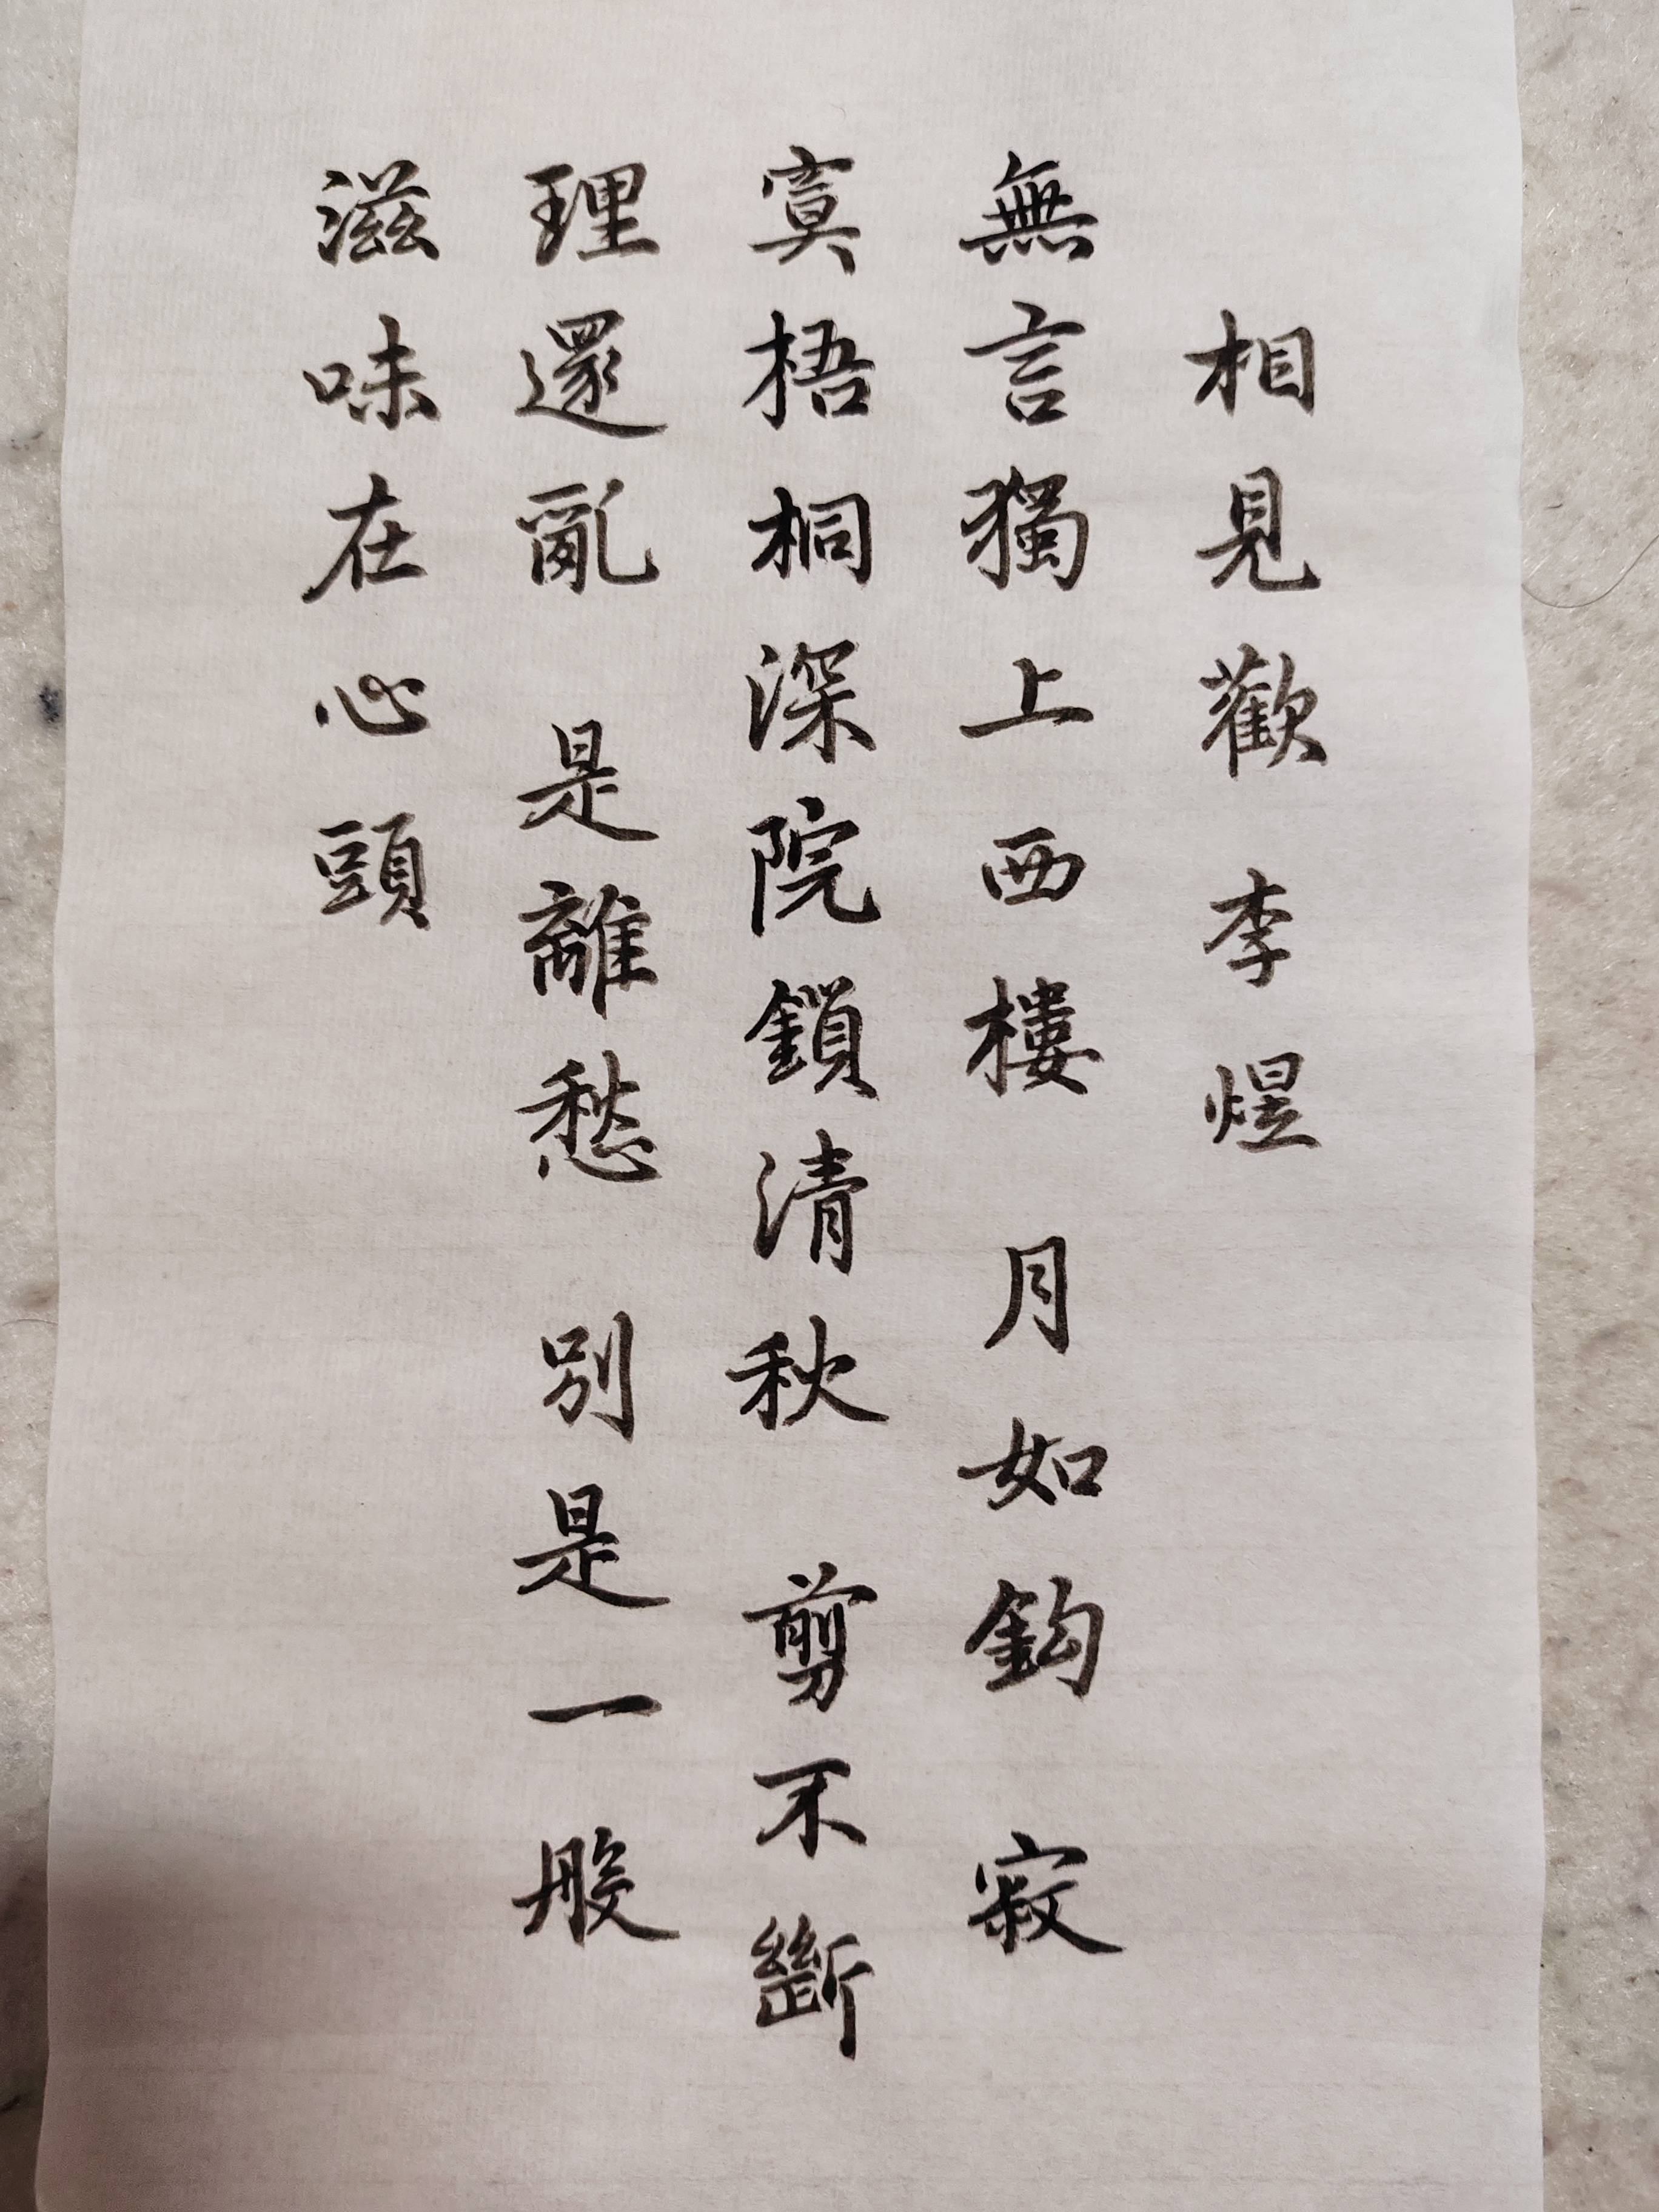 相見歡 李煜
無言獨上西樓 月如鈎 寂
寞梧桐深院鎖清秋 剪不斷
理還亂 是離愁 別是一般
滋味在心頭